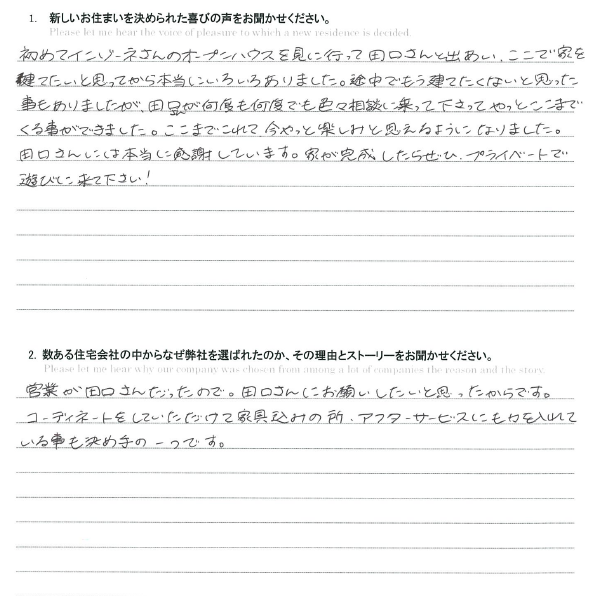 1. 新しいお住まいを決められた喜びの声をお聞かせください。
Please let me hear the voice of pleasure to which a new residence is decided.
初めてインゾーネさんのオープンハウスを見に行って田口さんと出あい、ここで家を
建てたいと思ってから本当にいろいろありました。途中でもう建てたくないと思った
事もありましたが、田口さんが何度も何度でも色々相談に乗って下さってやっとここまで
くる事ができました。ここまでこれて今やっと楽しみと思えるようになりました。
田口さんには本当に感謝しています。家が完成したらぜひ、プライベートで
遊びに来て下さい!
2. 数ある住宅会社の中からなぜ弊社を選ばれたのか、その理由とストーリーをお聞かせください。
Please let me hear why our company was chosen from among a lot of companies the reason and the story.
営業が田口さんだったので。田口さんにお願いしたいと思ったからです。
コーディネートをしていただけて家具込みの所、アフターサービスにも力を入れて
いる事も決め手の一つです。